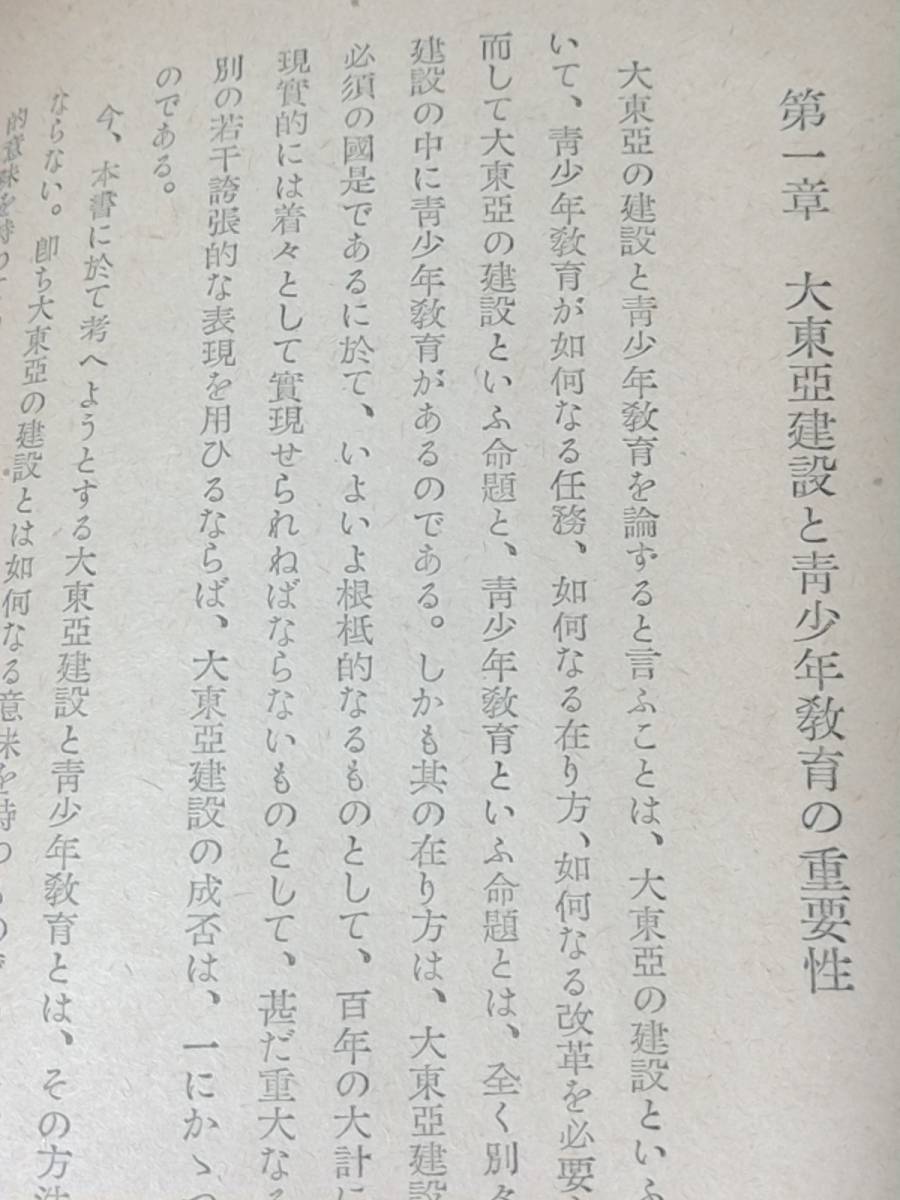 第一章　大東亞建設と靑少年敎育の重要性
大東亞の建設と靑少年敎育を論ずると言ふことは、大東亞の建設といふ
いて、靑少年敎育が如何なる任務、如何なる在り方、如何なる改革を必要
而して大東亞の建設といふ命題と、靑少年敎育といふ命題とは、全く別々
建設の中に靑少年敎育があるのである。しかも其の在り方は、大東亞建設
必須の國是であるに於て、いよいよ根柢的なるものとして、百年の大計に
現實的には着々として實現せられねばならないものとして、甚だ重大なる
別の若干誇張的な表現を用ひるならば、大東亞建設の成否は、一にかゝつ
のである。
今、本書に於て考へようとする大東亞建設と靑少年敎育とは、その方法
ならない。卽ち大東亞の建設とは如何なる意味を持つもので
的意味を持つて